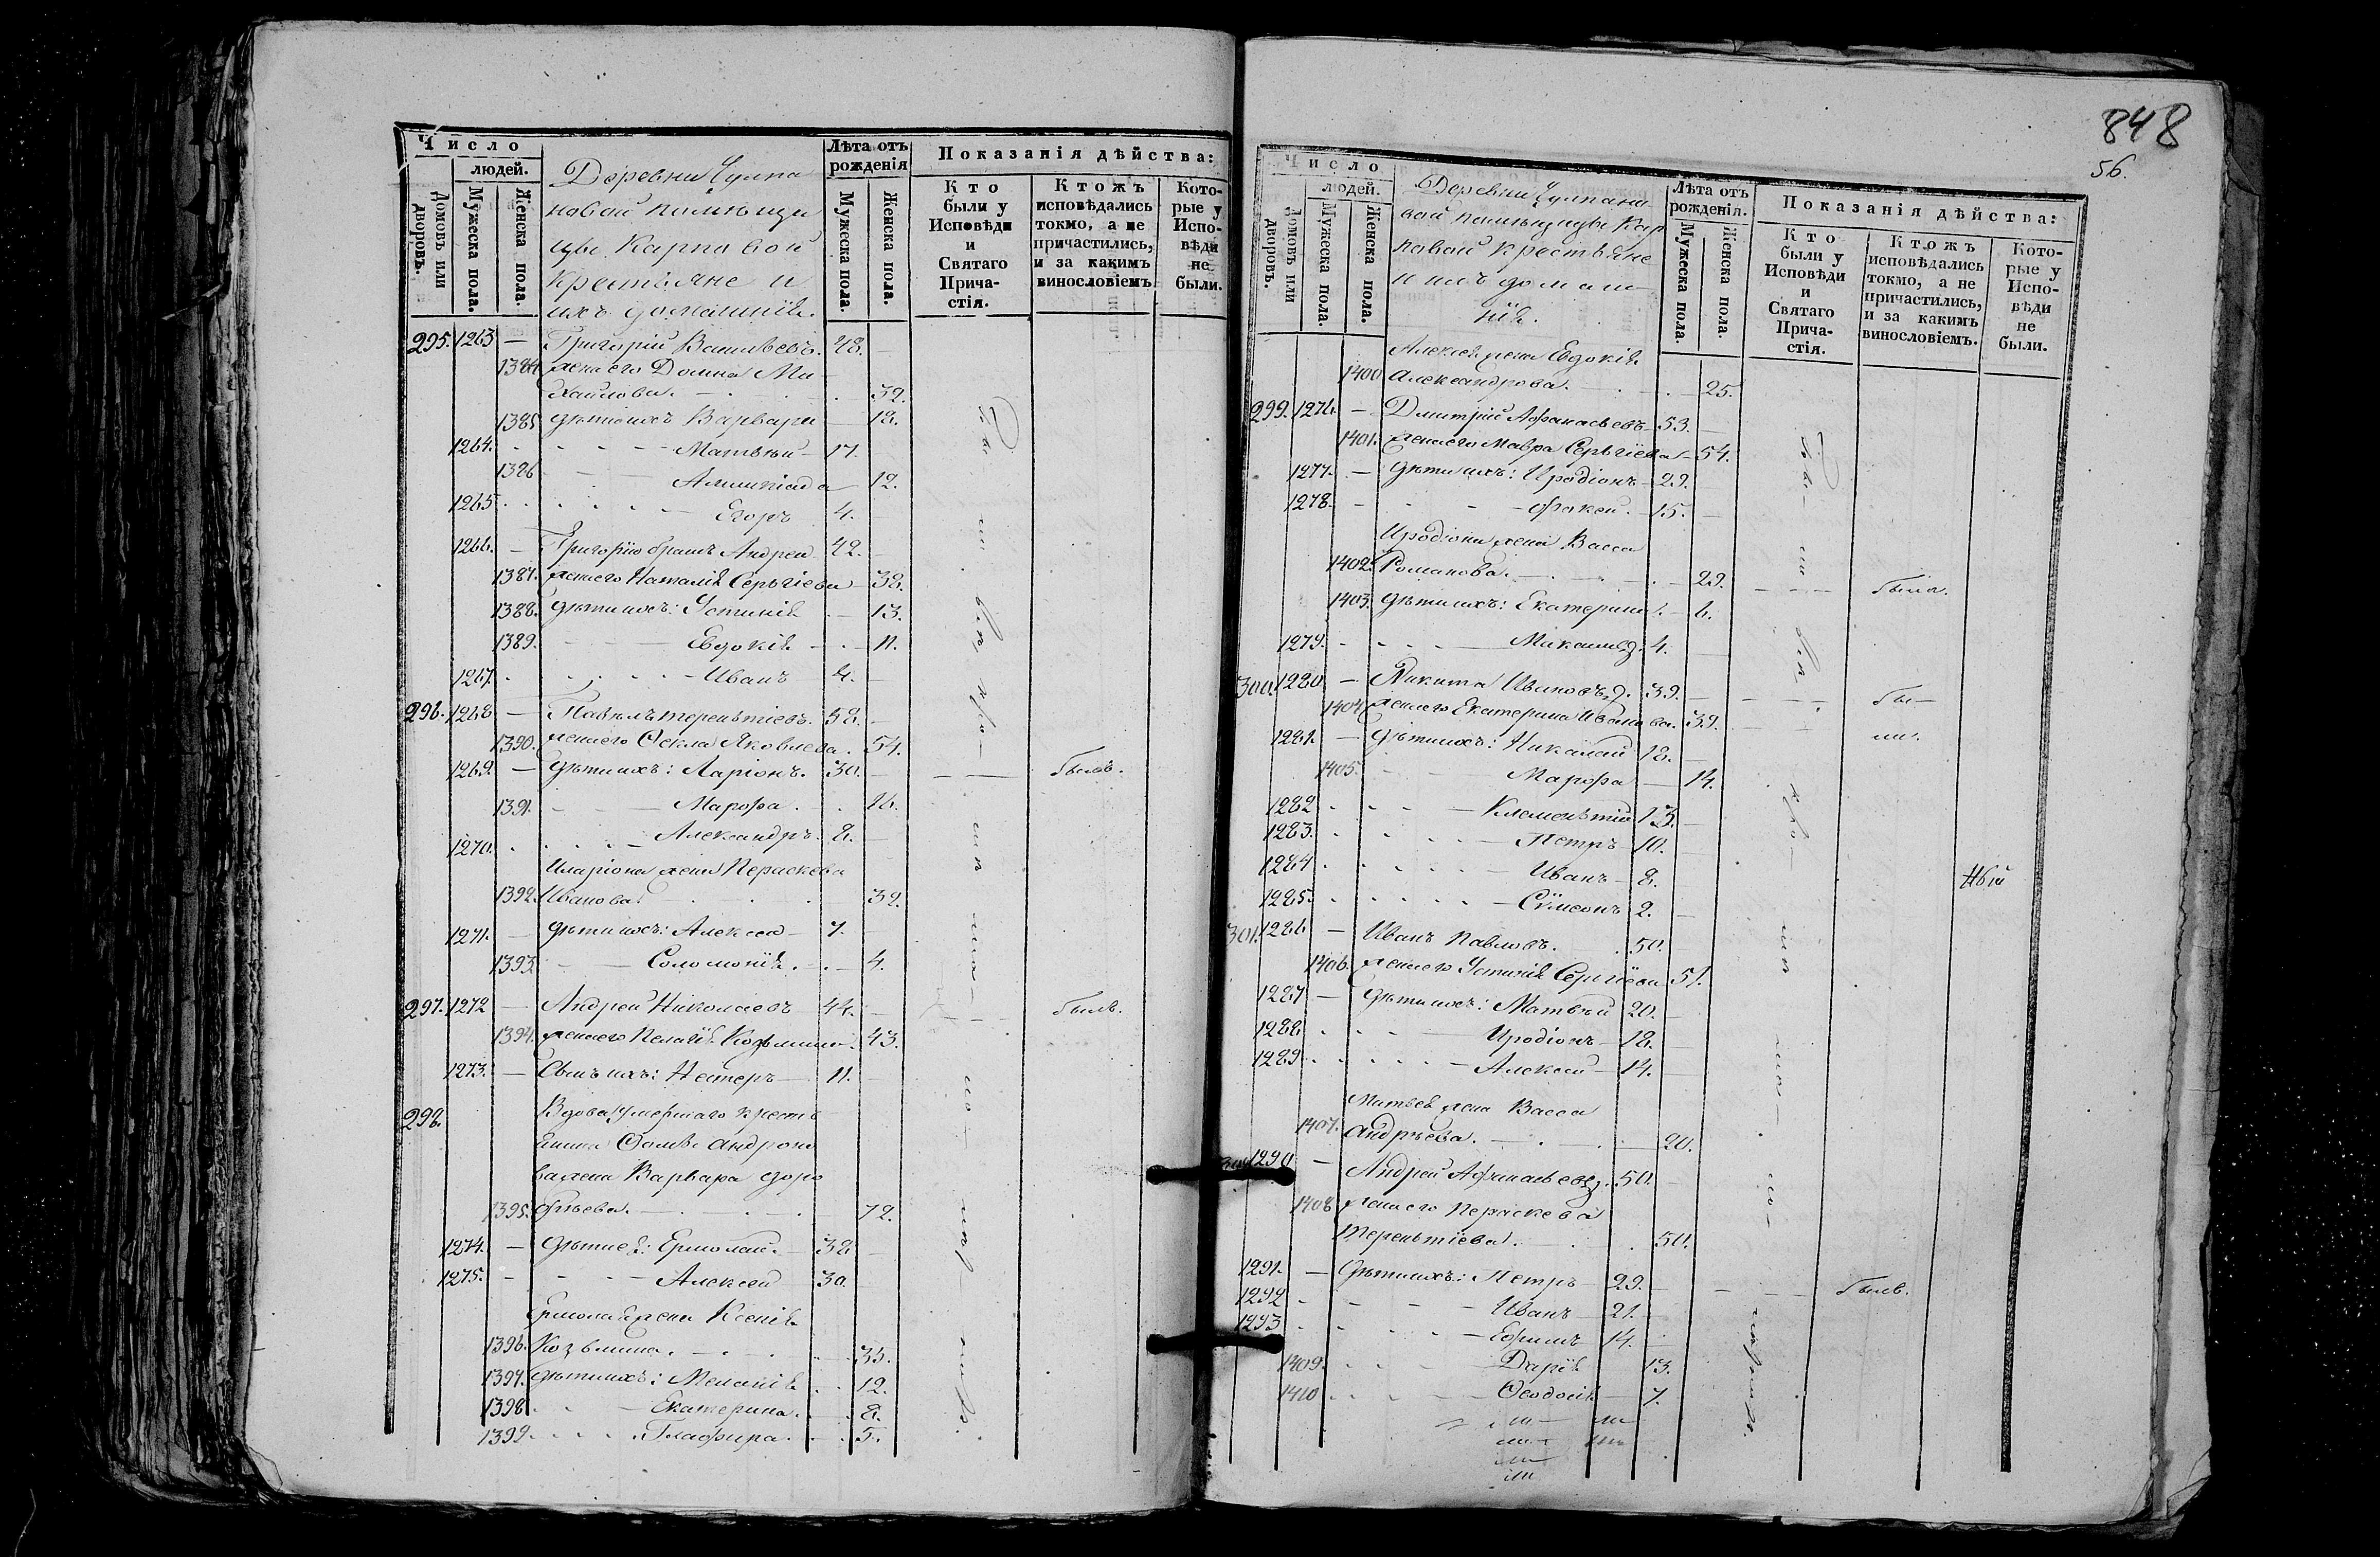 Число
людей.
Домовъ или дворовъ.
Мужеска пола.
Женска пола.
Деревни Чулпа
новой помѣщи
цы Карповой
крестьяне и
ихъ домашніе.
Лѣта отъ рожденія
Мужеска пола.
Женска пола.
Показанія дѣйства:
Кто были у Исповѣди и Святаго Причастія.
Ктожъ исповѣдались токмо, а не причастились, и за какимъ винословіемъ
Которые у Исповѣди не были.
295. 1263 — Григорій Васильевъ. 48.
1384 жена его Домна Ми
хайлова. — 39.
1385 дѣти ихъ Варвара — 18.
1264. Матвѣй — 17.
1386 12.
1265 Егоръ 4.
1266. — Григорію братъ Андрей 42.
1387. жена его Наталія Сергіева — 38.
1388. дѣти ихъ: Устинія — 13.
1389. Евдокія — 11.
1267. Иванъ 4.
296. 1268 — Павелъ Терентіевъ. 58.
1390. жена его Ѳекла Яковлева. 54.
1269. — дѣти ихъ: Ларіонъ. 30. былъ.
1391. Марѳа. 16.
1270. Александръ. 8.
Иларіона жена Параскева
1392. Иванова. 32.
1271. — дѣти ихъ: Алексей — 7.
1393. Соломонія. — 4.
297. 1272 — Андрей Николаевъ 44. былъ.
1394. жена его Пелагія Козьмина. 43.
1273. — Сынъ ихъ: Нестеръ — 11.
298. Вдова умершаго кресть
янина Ѳомы Андроно
ва жена Варвара Доро
1395. фѣева. — 72.
1274. — Дѣти ея: Ермолай. — 38
1275. Алексей 30.
Ермолая жена Ксенія
1396. Козьмина. 35.
1397. дѣти ихъ: Меланія 12.
1398. Екатерина. 8.
1399. Глафира. 5.
848
56.
Число
людей.
Домовъ или дворовъ.
Мужеска пола.
Женска пола.
Деревни Чулпано
вой помѣщицы Кар
повой крестьяне
и ихъ домаш
ніе.
Лѣта отъ рожденія.
Мужеска пола.
Женска пола.
Показанія дѣйства:
Кто были у Исповѣди и Святаго Причастія.
Ктожъ исповѣдались токмо, а не причастились, и за какимъ винословіемъ.
Которые у Исповѣди не были.
Алексея жена Евдокія
1400 Александрова. — 25.
299. 1276. — Дмитрій Афанасьевъ — 53.
1401. жена его Мавра Сергіева — 54.
1277. — Дѣти ихъ: Иродіонъ — 29.
1278. — 15.
Иродіона жена Васса
1402. Романова. — 29. была.
1403. дѣти ихъ: Екатерина. — 6.
1279. 4.
300. 1280 — Никита Ивановъ. 39. бы—
1404. жена его Екатерина Иванова. 39. ли.
1281. — Дѣти ихъ: Николай 18.
1405. Марѳа — 14.
1282 Клементій 13.
1283. Петръ — 10.
1284 Иванъ — 8.
1285. Сѵмеонъ 2.
301. 1286 — Иванъ Павловъ. 50.
1406. жена его Устинія Сергіева 51.
1287 — Дѣти ихъ: Матвѣй 20.
1288 Иродіонъ — 18.
1289. Алексей — 14.
Матвея жена Васса
1407. Андреева. — 20.
1290 — Андрей Афанасьевъ. 50.
1408 жена его Параскева
Терентіева. 50.
1291. — Дѣти ихъ: Петръ — 29. былъ.
1292 Иванъ — 21.
1293 Ефимъ 14.
1409. Дарія 13.
1410 Ѳеодосія — 7.